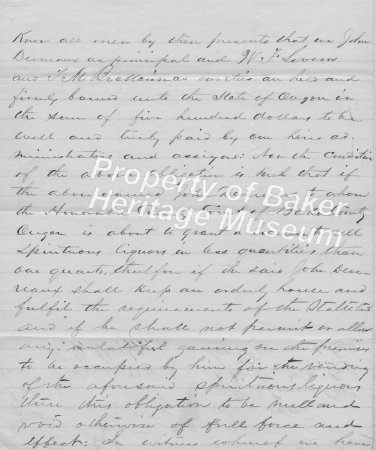 Know all men by these presents that we John
Devereaux as principal and W. F. Lovens
and T. M. as sureties are held and
firmly bound unto the State of Oregon in
the sum of five hundred dollars to be
well and truly paid by our heirs ad-
ministrators and assigns: Now the condition
of the above obligation is such that if
the above named John Devereaux to whom
the Honorable County Court of Baker County
Oregon is about to grant license to sell
Spirituous liquors in less quantities than
one quart, therefor if he said John Deve-
reaux shall keep an orderly house and
fulfil the requirements of the Statutes
and if he shall not permit or allow
any unlawful gaming on the premises
to be occupied by him for the vending
of the aforesaid spirituous liquors
then this obligation to be null and
void otherwise of full force and
effect: In witness whereof we have
Property of Baker
Heritage Museum